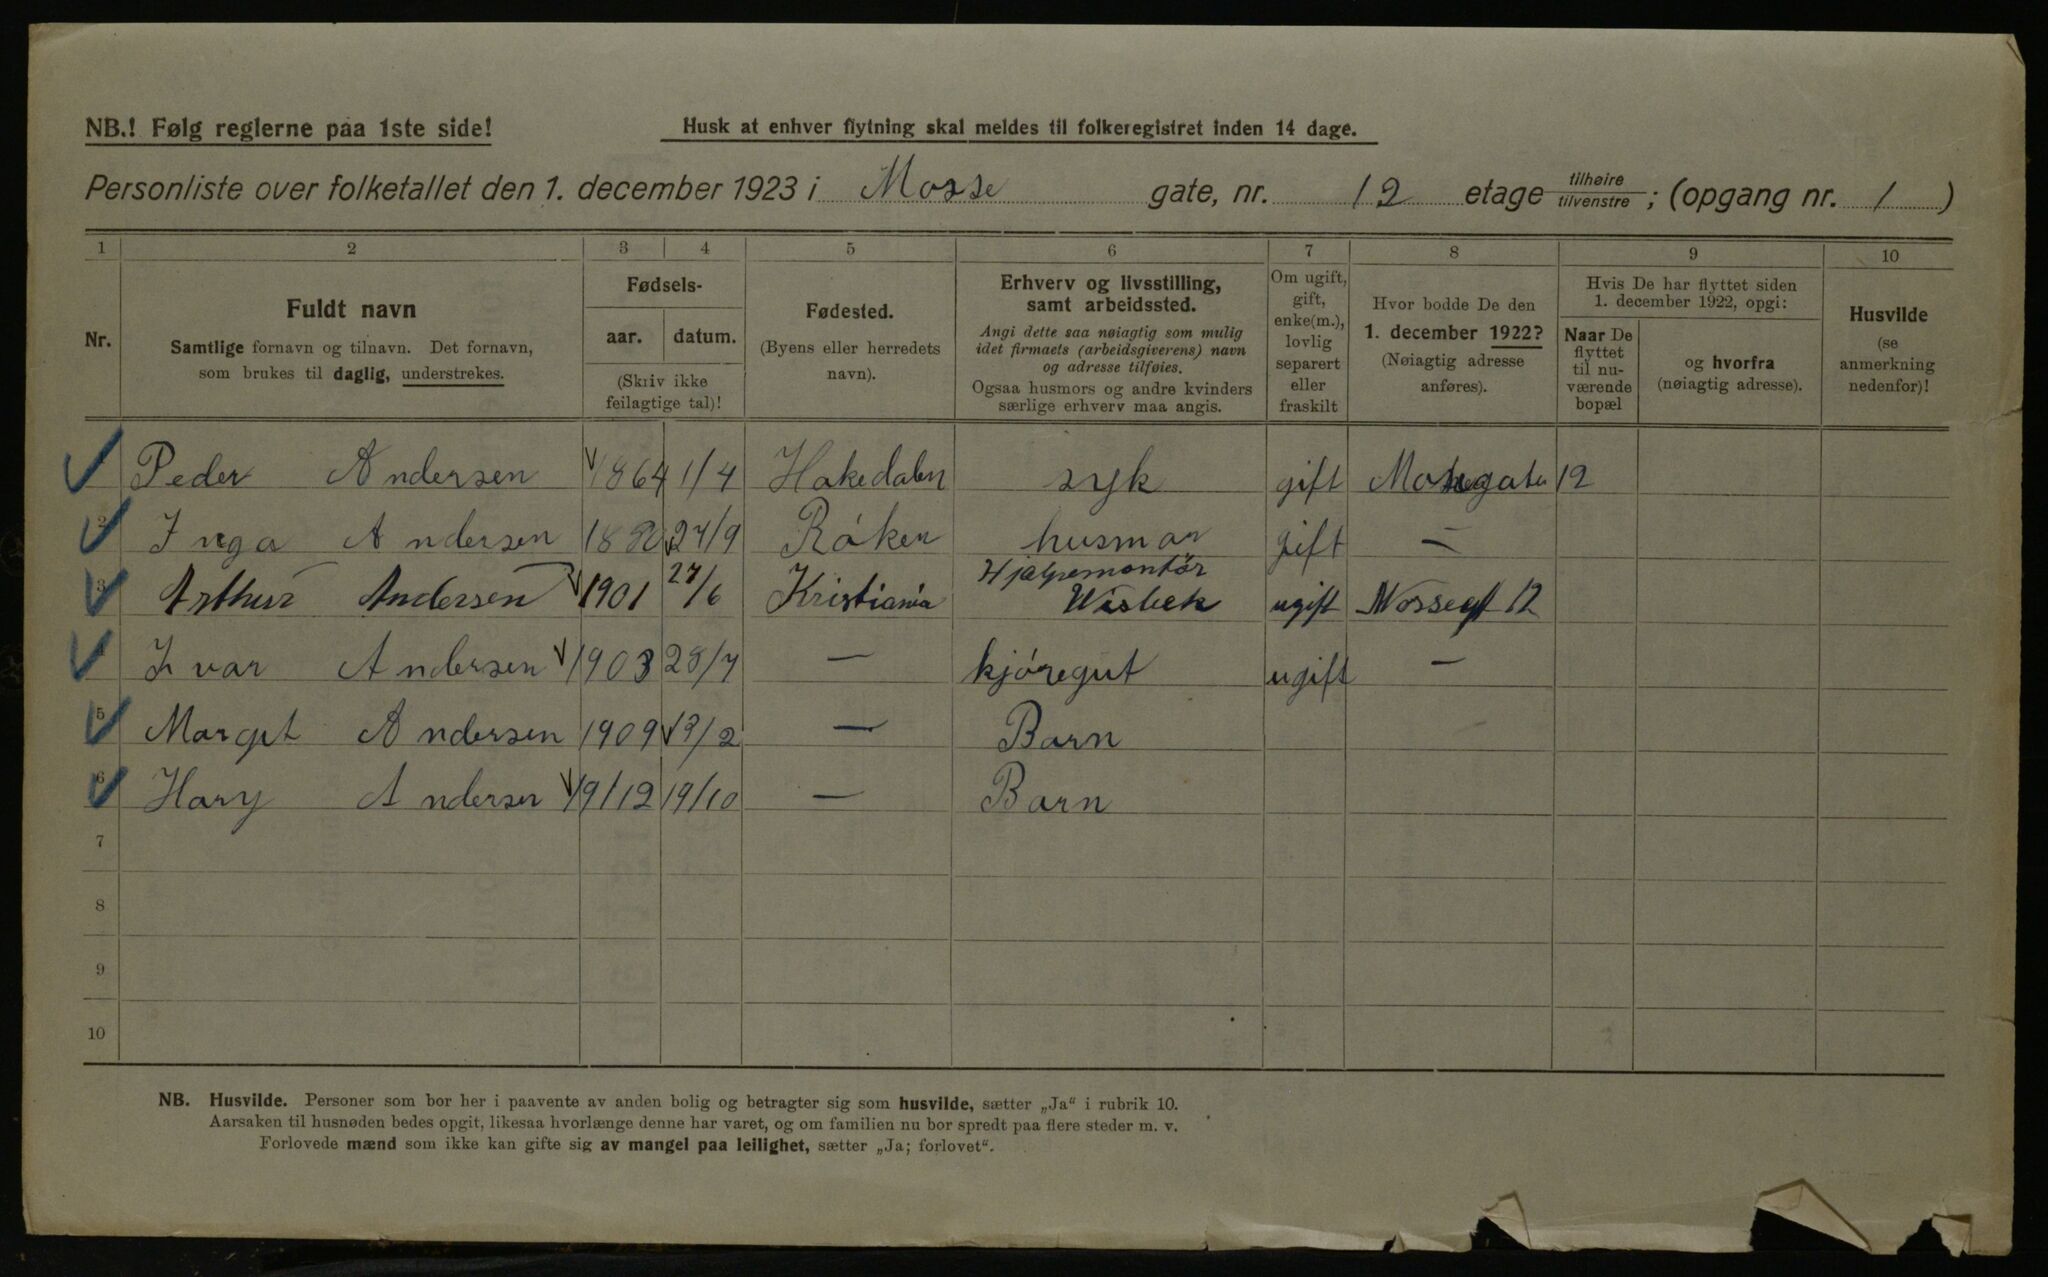 NB.! Følg reglerne paa 1ste side!
Husk at enhver flytning skal meldes til folkeregistret inden 14 dage.
Personliste over folketallet den 1. december 1923 i Mosse gate, nr. 12 etage tilhøire tilvenstre; (opgang nr. 1)
1 2 3 4 5 6 7 8 9 10
Nr.
Fuldt navn
Samtlige fornavn og tilnavn. Det fornavn,
som brukes til daglig, understrekes.
Fødsels-
aar. datum.
(Skriv ikke
feilagtige tal)!
Fødested.
(Byens eller herredets
navn).
Erhverv og livsstilling,
samt arbeidssted.
Angi dette saa nøiagtig som mulig
idet firmaets (arbeidsgiverens) navn
og adresse tilføies.
Ogsaa husmors og andre kvinders
særlige erhverv maa angis.
Om ugift,
gift,
enke(m.),
lovlig
separert
eller
fraskilt
Hvor bodde De den
1. december 1922?
(Nøiagtig adresse
anføres).
Hvis De har flyttet siden
1. december 1922, opgi:
Naar De
flyttet
til nu-
værende
bopæl
og hvorfra
(nøiagtig adresse).
Husvilde
(se
anmerkning
nedenfor)!
Peder Andersen 1864 1/4 Hakedalen syk gift Mossegata 12
2 Inga Andersen 27/9 Róken husmor gift —
3 Arthur Andersen 1901 27/6 Kristiania Hjælpemontør Wisbek ugift Mossegt 12
Ivar Andersen 1903 28/7 — kjóregut ugift —
5 Margit Andersen 1909 13/2 — Barn
6 Hary Andersen 1912 19/10 — Barn
7
8
9
10
NB. Husvilde. Personer som bor her i paavente av anden bolig og betragter sig som husvilde, sætter „Ja“ i rubrik 10.
Aarsaken til husnøden bedes opgit, likesaa hvorlænge denne har varet, og om familien nu bor spredt paa flere steder m. v.
Forlovede mænd som ikke kan gifte sig av mangel paa leilighet, sætter „Ja; forlovet“.